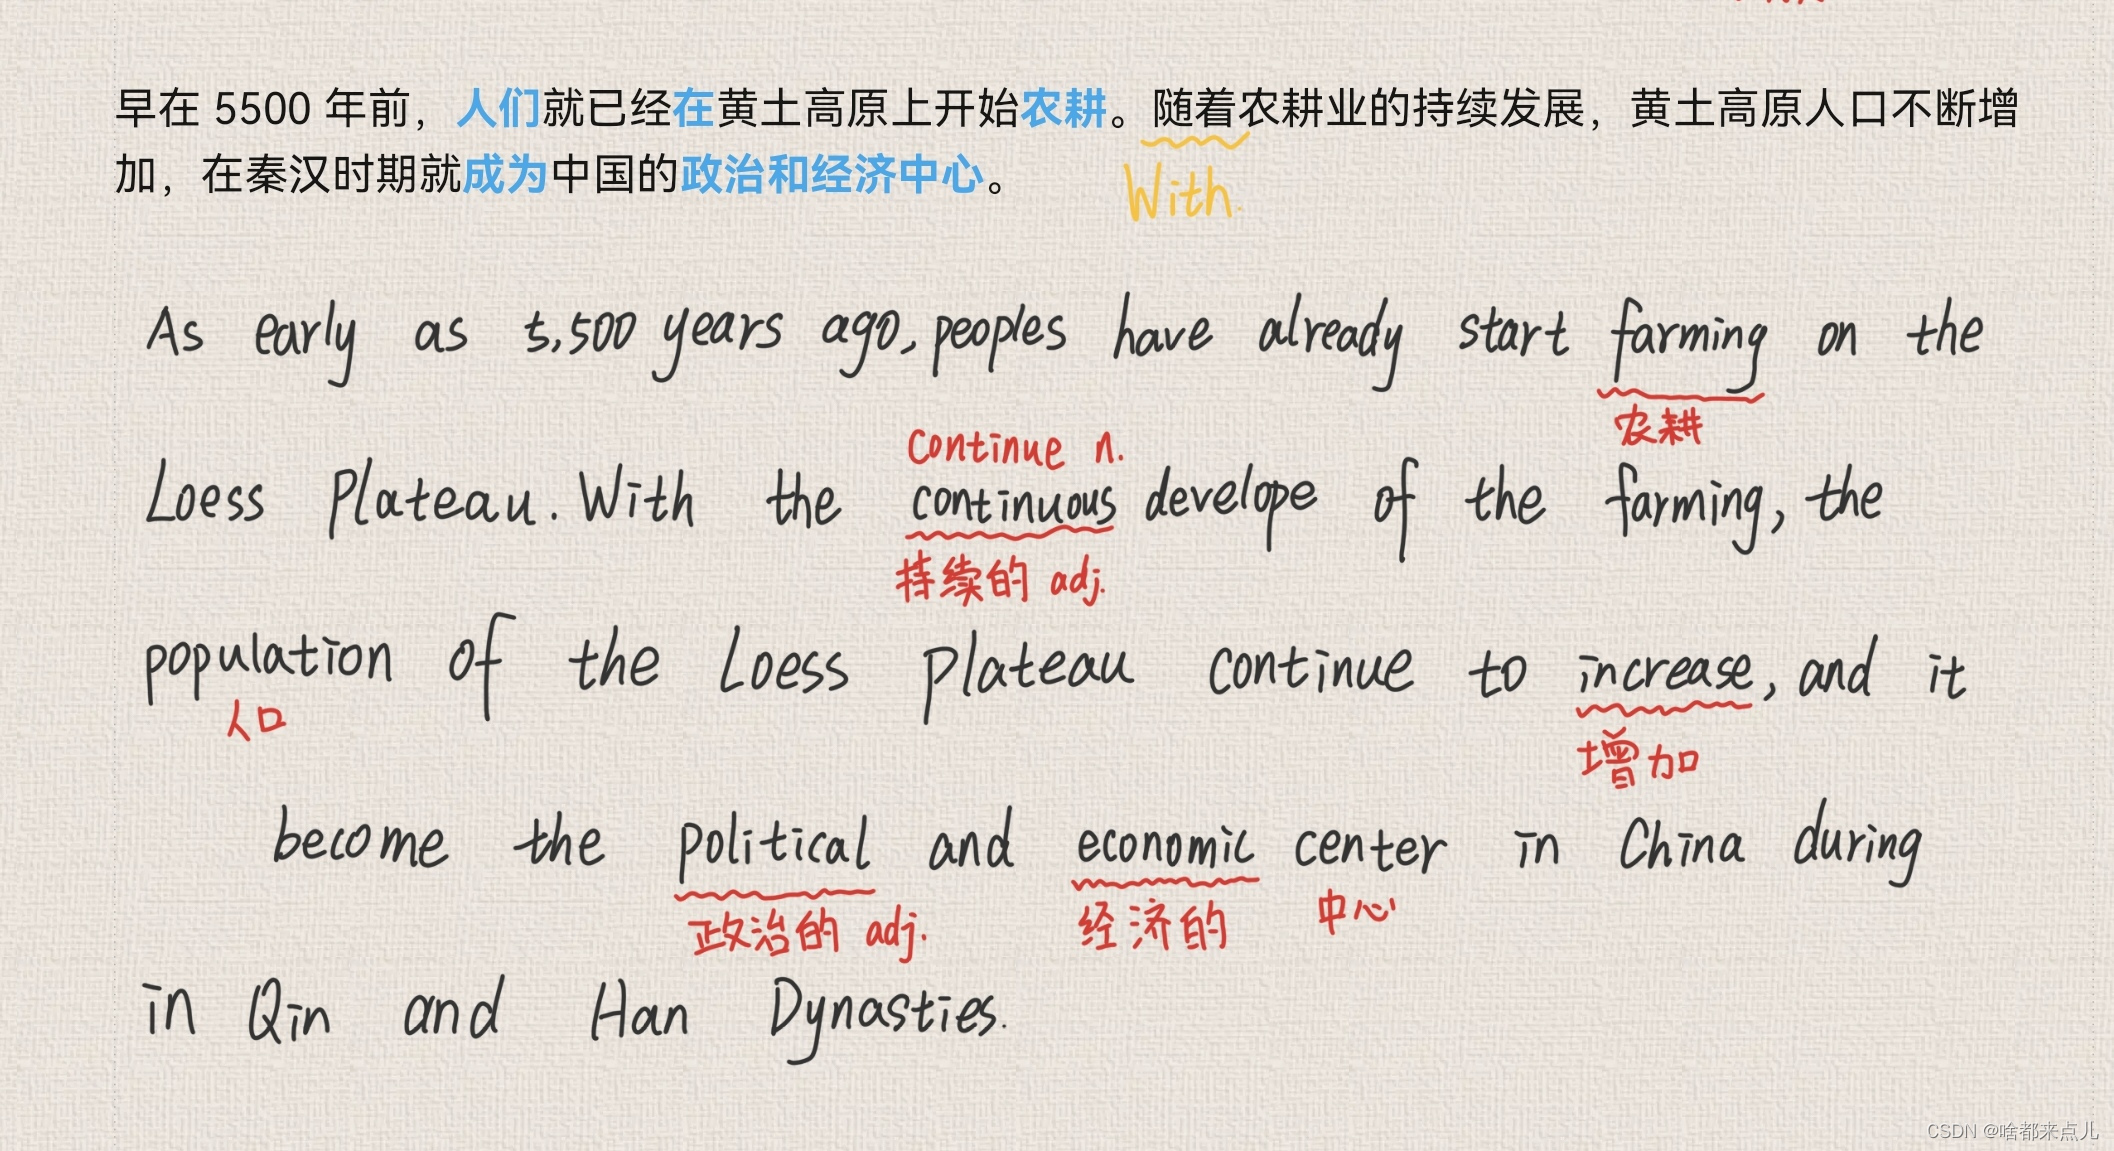 早在 5500 年前，人们就已经在黄土高原上开始农耕。随着农耕业的持续发展，黄土高原人口不断增
加，在秦汉时期就成为中国的政治和经济中心。
With.
As early as 5,500 years ago, peoples have already start farming on the
农耕
Continue n.
Loess Plateau. With the continuous develope of the farming, the
持续的 adj.
population of the Loess Plateau continue to increase, and it
人口
增加
become the political and economic center in China during
政治的 adj.
经济的
中心
in Qin and Han Dynasties.
CSDN @啥都来点儿